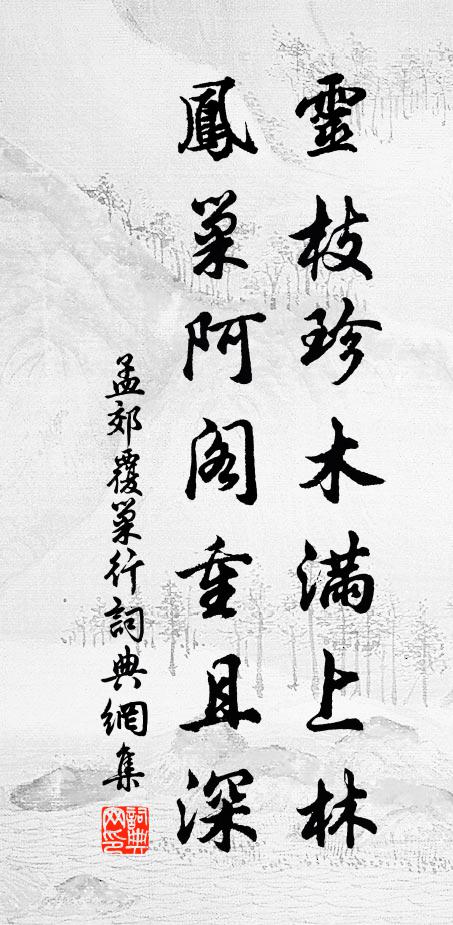 靈枝珍木滿上林
鳳巢阿閣重且深
孟郊覆巢行詞典網集
詞典網印